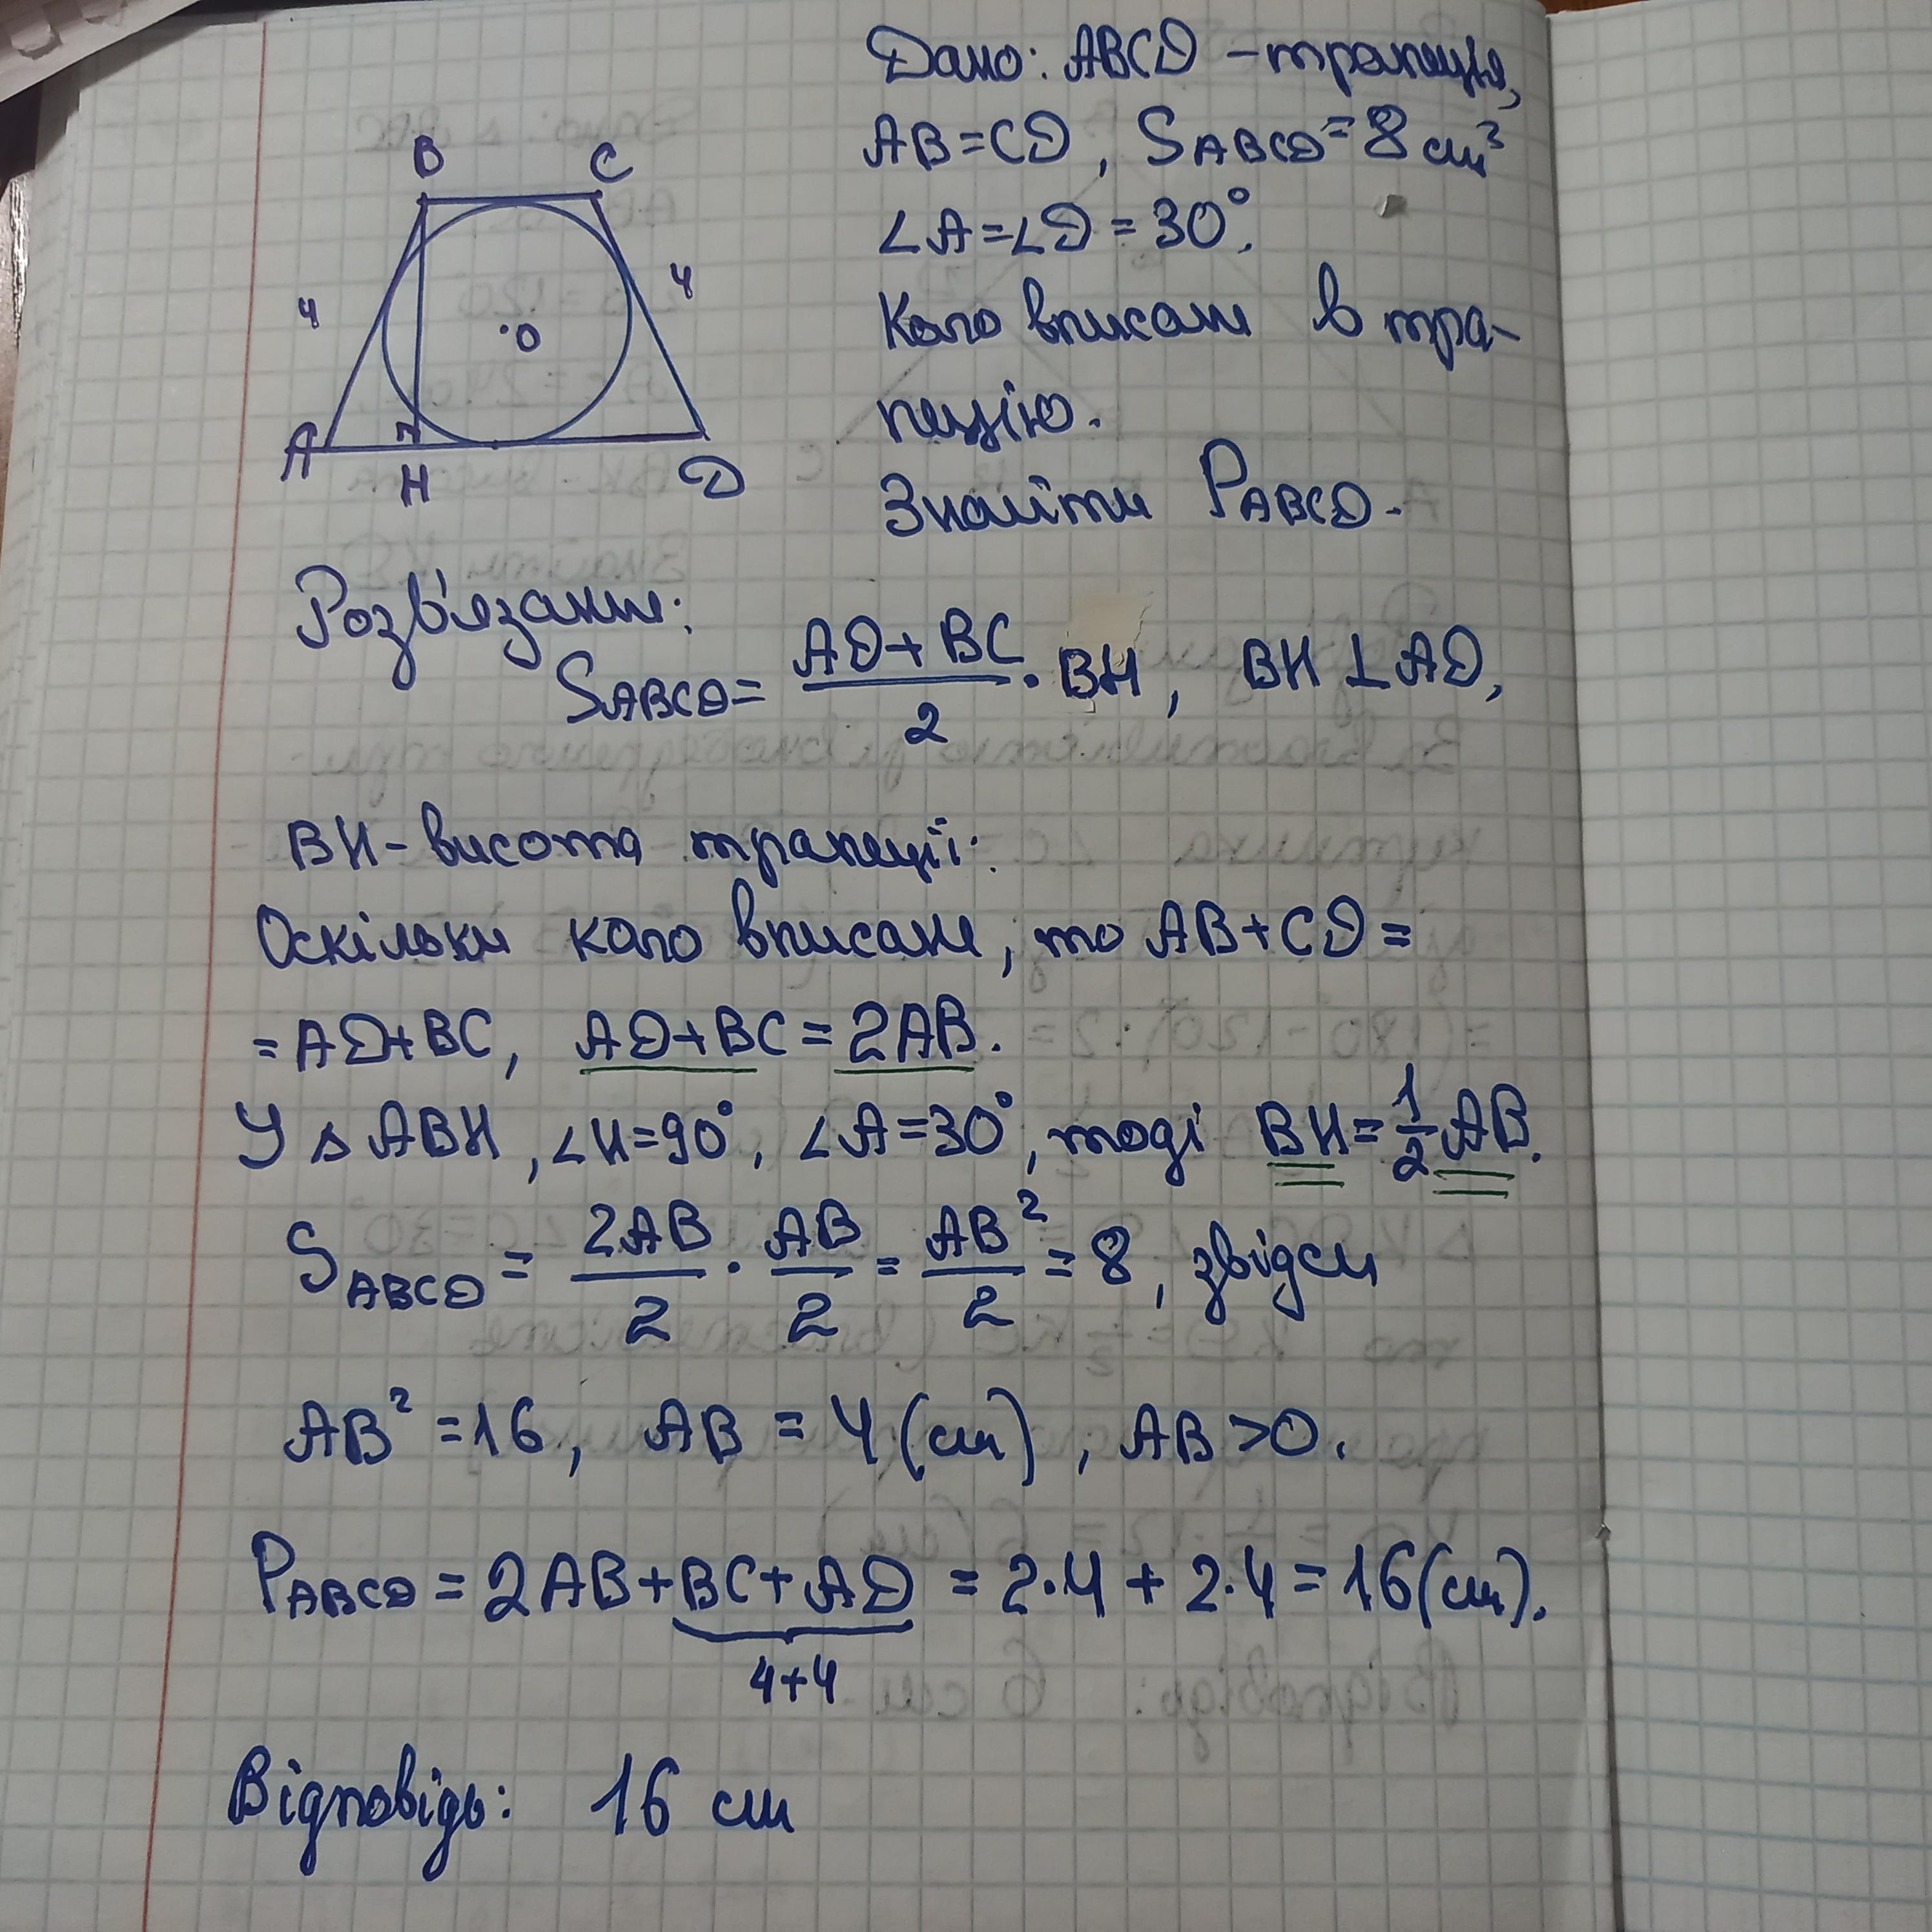 Дано: ABCD – трапеція,
AB=CD, S_ABCD=8 см³
∠A=∠D=30°.
Коло вписане в тра-
пецію.
Знайти P_ABCD.
B C
4 4
.O
A H D
Розв'язання:
S_ABCD = (AD+BC)/2 · BH, BH⊥AD,
BH – висота трапеції.
Оскільки коло вписане, то AB+CD=
=AD+BC, AD+BC=2AB.
У △ABH, ∠H=90°, ∠A=30°, тоді BH=1/2 AB.
S_ABCD = 2AB/2 · AB/2 = AB²/2 = 8, звідси
AB²=16, AB = 4 (см), AB>0.
P_ABCD = 2AB+BC+AD = 2·4 + 2·4=16(см).
4+4
Відповідь: 16 см